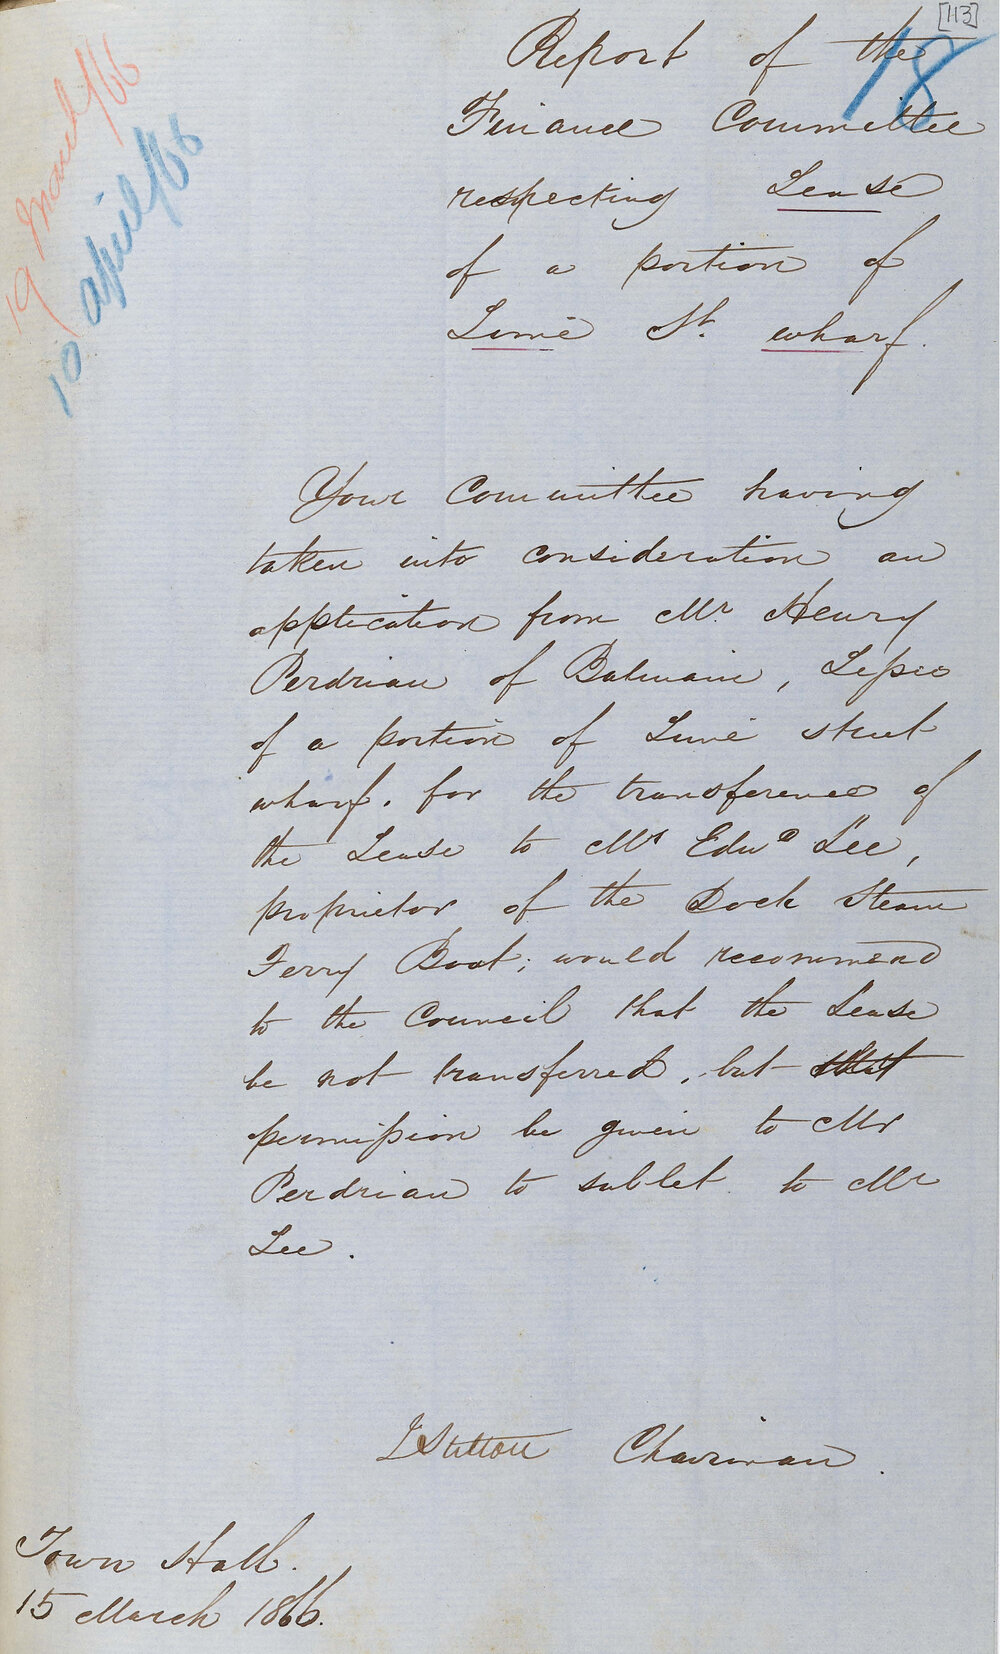 [113]
18
19 March/66
10 April/66
Report of the
Finance Committee
respecting Lease
of a portion of
Lime St. wharf.
Your Committee having
taken into consideration an
application from Mr. Henry
Perdriau of Balmain, Lessee
of a portion of Lime street
wharf, for the transference of
the Lease to Mr Edwd Lee,
proprietor of the Dock Steam
Ferry Boat; would recommend
to the Council that the Lease
be not transferred, but that
permission be given to Mr
Perdriau to sublet to Mr
Lee.
Chairman.
Town Hall.
15 March 1866.